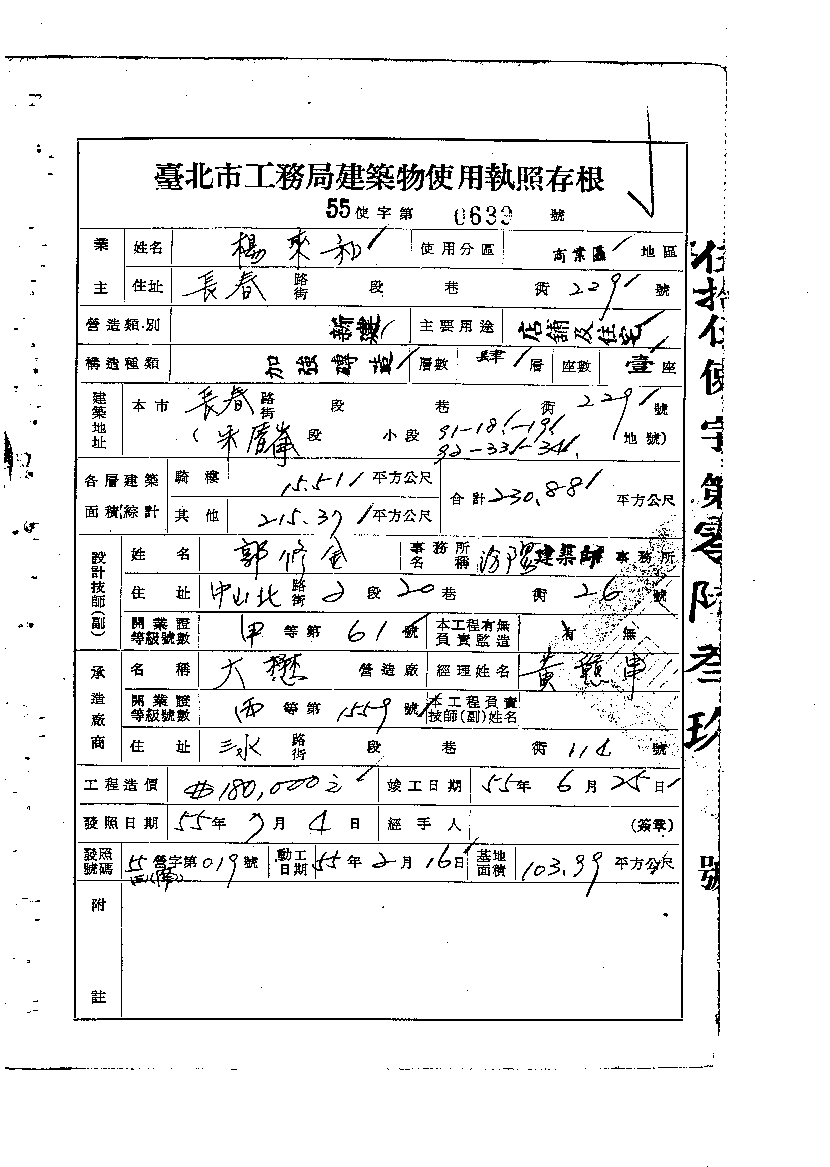 臺北市工務局建築物使用執照存根
55使字第 0639 號
業主 姓名 楊來和 使用分區 商業區 地區
住址 長春 路街 段 巷 衖 229 號
營造類別 新建 主要用途 店舖及住宅
構造種類 加強磚造 層數 肆 層 座數 壹 座
建築地址 本市 長春 路街 段 巷 衖 229 號
( 段 小段 91-18.-19. 92-33.-34. 地號)
各層建築面積綜計 騎樓 15.51 平方公尺 合計 230.88 平方公尺
其他 215.37 平方公尺
設計技師(副) 姓名 郭修 事務所名稱 汾陽建築師 事務所
住址 中山北 路街 2 段 20 巷 衖 26 號
開業證等級號數 甲 等第 61 號 本工程有無負責監造 有 無
承造廠商 名稱 大懋 營造廠 經理姓名 黃
開業證等級號數 丙 等第 1559 號 本工程負責技師(副)姓名
住址 三水 路街 段 巷 衖 114 號
工程造價 180,000元 竣工日期 55年 6月 25日
發照日期 55年 7月 4日 經手人 (簽章)
發照號碼 55 營字第 019 號 動工日期 55年 2月 16日 基地面積 103.99 平方公尺
附註
伍拾伍使字第零陸叁玖號